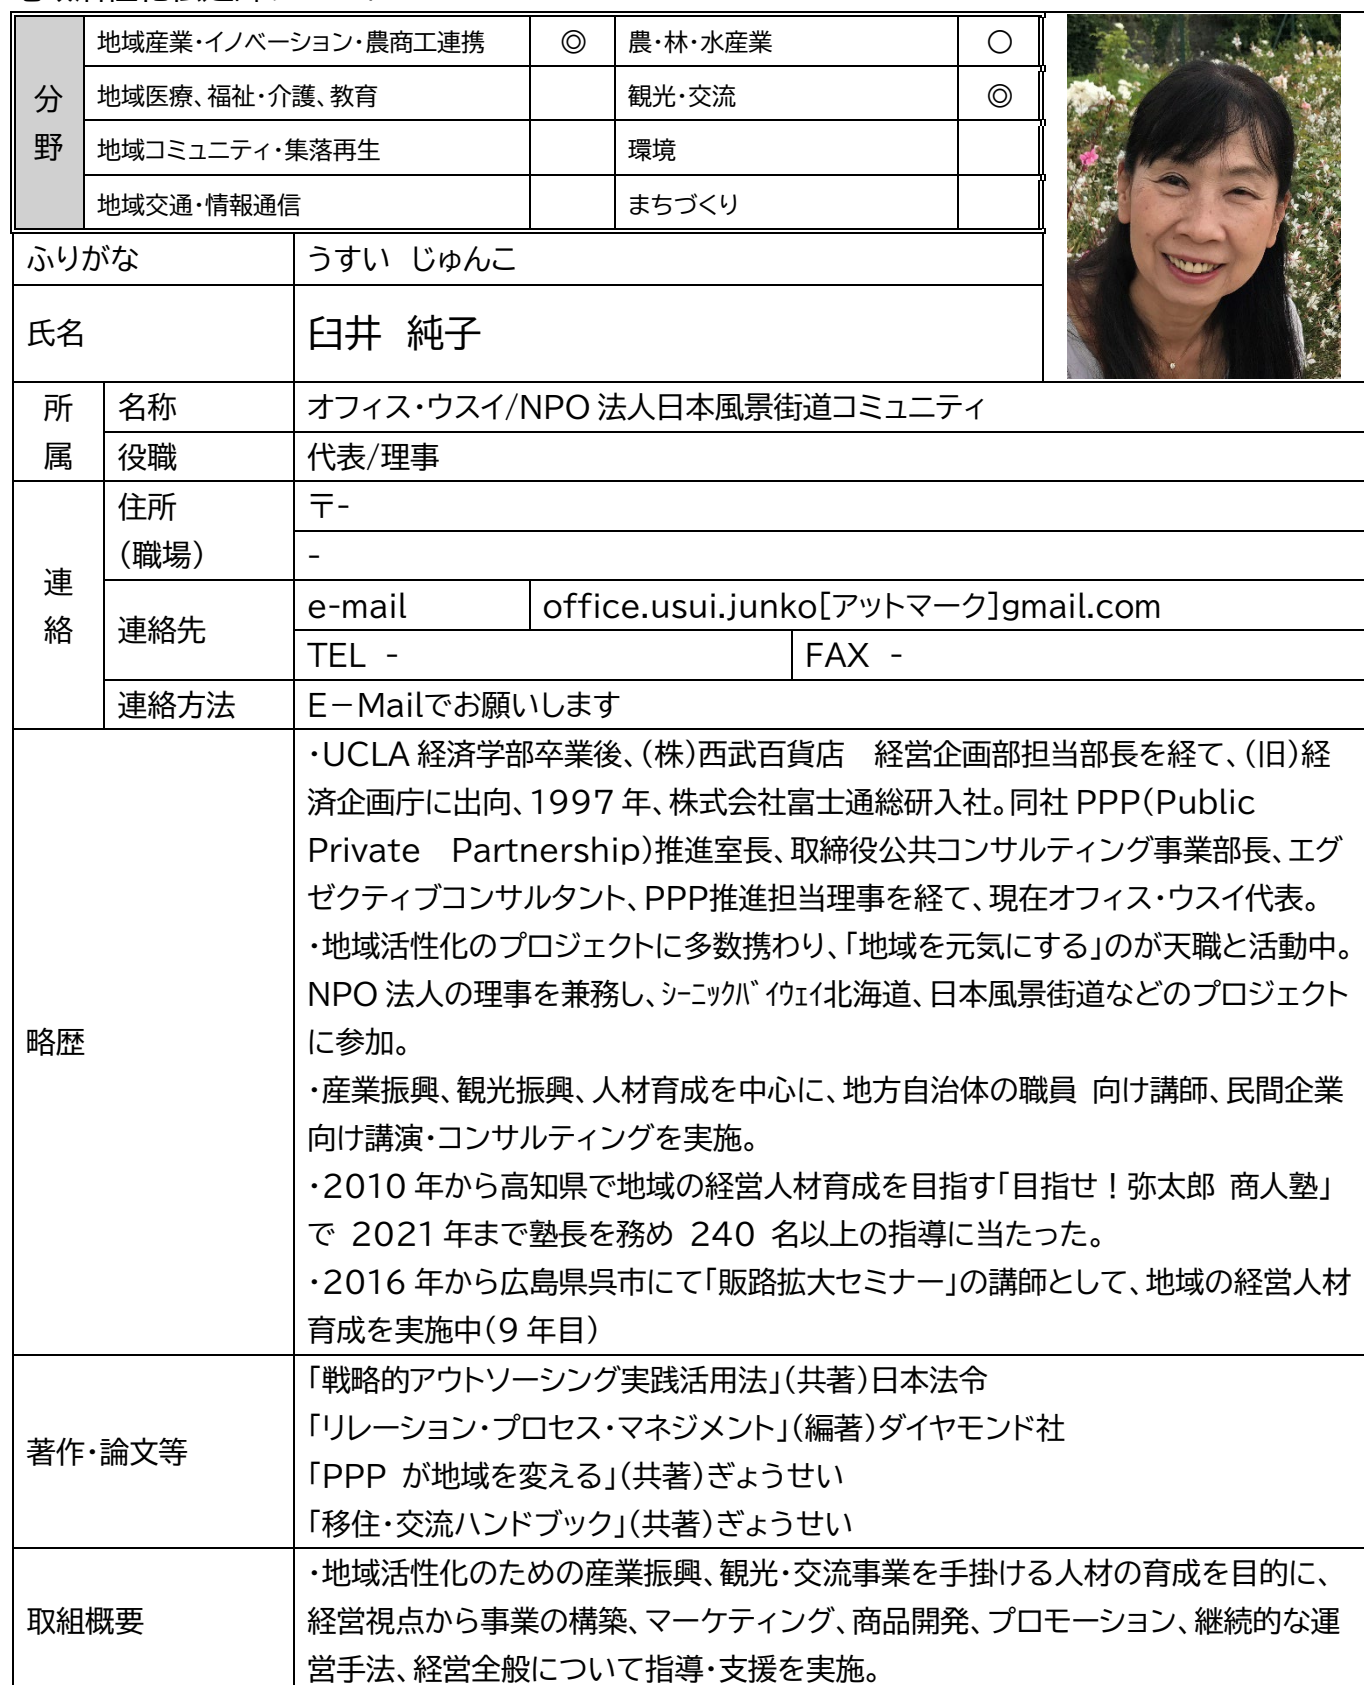 地域産業・イノベーション・農商工連携 ◎ 農・林・水産業 ○
分野
地域医療、福祉・介護、教育 観光・交流 ◎
地域コミュニティ・集落再生 環境
地域交通・情報通信 まちづくり
ふりがな うすい じゅんこ
氏名 臼井 純子
所属 名称 オフィス・ウスイ/NPO法人日本風景街道コミュニティ
役職 代表/理事
連絡 住所 〒-
(職場) -
連絡先 e-mail office.usui.junko[アットマーク]gmail.com
TEL - FAX -
連絡方法 E－Mailでお願いします
略歴
・UCLA経済学部卒業後、(株)西武百貨店　経営企画部担当部長を経て、(旧)経
済企画庁に出向、1997年、株式会社富士通総研入社。同社PPP(Public
Private　Partnership)推進室長、取締役公共コンサルティング事業部長、エグ
ゼクティブコンサルタント、PPP推進担当理事を経て、現在オフィス・ウスイ代表。
・地域活性化のプロジェクトに多数携わり、「地域を元気にする」のが天職と活動中。
NPO法人の理事を兼務し、ｼｰﾆｯｸﾊﾞｲｳｪｲ北海道、日本風景街道などのプロジェクト
に参加。
・産業振興、観光振興、人材育成を中心に、地方自治体の職員 向け講師、民間企業
向け講演・コンサルティングを実施。
・2010年から高知県で地域の経営人材育成を目指す「目指せ！弥太郎 商人塾」
で 2021年まで塾長を務め 240 名以上の指導に当たった。
・2016年から広島県呉市にて「販路拡大セミナー」の講師として、地域の経営人材
育成を実施中(9年目)
著作・論文等
「戦略的アウトソーシング実践活用法」(共著)日本法令
「リレーション・プロセス・マネジメント」(編著)ダイヤモンド社
「PPP が地域を変える」(共著)ぎょうせい
「移住・交流ハンドブック」(共著)ぎょうせい
取組概要
・地域活性化のための産業振興、観光・交流事業を手掛ける人材の育成を目的に、
経営視点から事業の構築、マーケティング、商品開発、プロモーション、継続的な運
営手法、経営全般について指導・支援を実施。